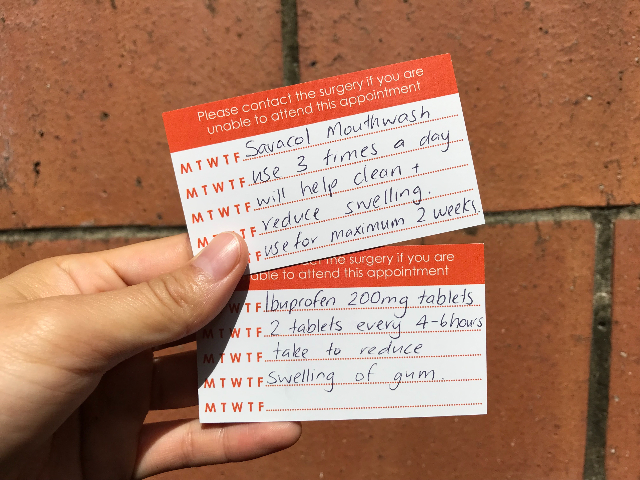 Please contact the surgery if you are
unable to attend this appointment
M T W T F Savacol Mouthwash
M T W T F use 3 times a day
M T W T F will help clean +
M T W T F reduce swelling.
F use for maximum 2 weeks.
the surgery if you are
able to attend this appointment
W T F Ibuprofen 200mg tablets
W T F 2 tablets every 4-6 hours
M T W T F take to reduce
M T W T F swelling of gum.
M T W T F